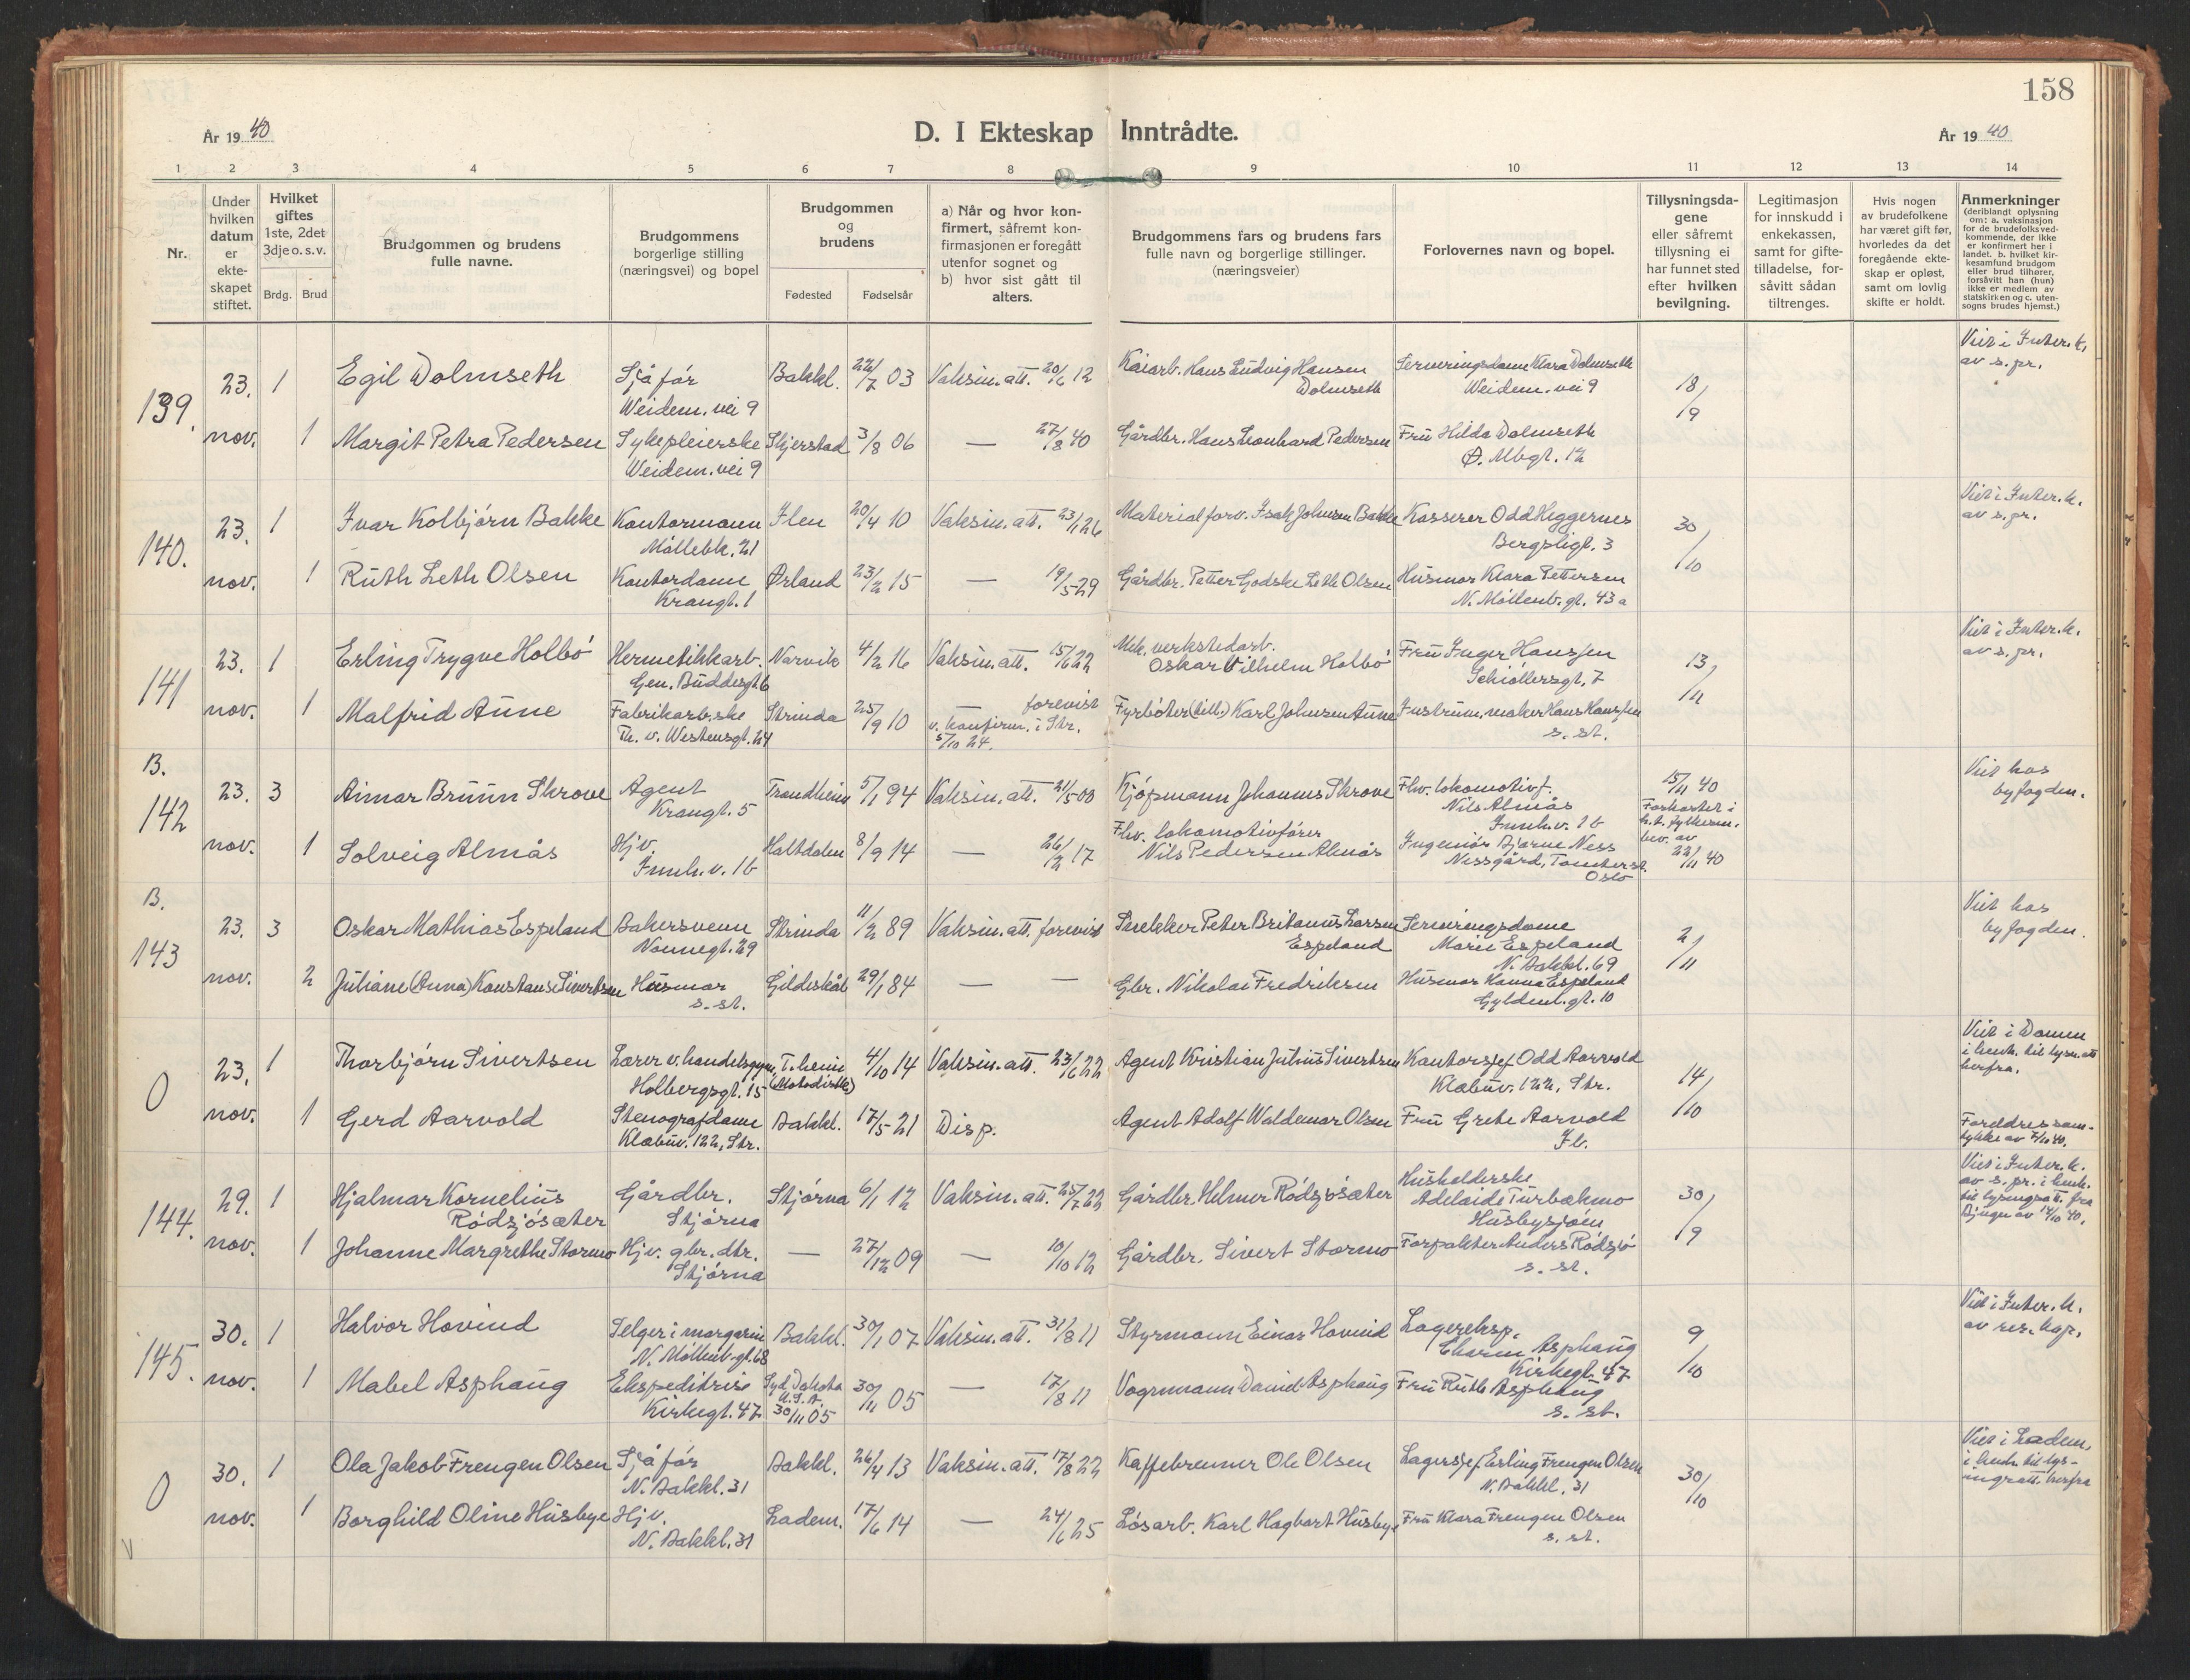 158
År 1940
D. I Ekteskap Inntrådte.
År 1940
1 2 3 4 5 6 7 8 9 10 11 12 13 14
Nr.
Under hvilken datum er ekte-skapet stiftet.
Hvilket giftes 1ste, 2det 3dje o. s. v.
Brdg. Brud
Brudgommen og brudens fulle navne.
Brudgommens borgerlige stilling (næringsvei) og bopel
Brudgommen og brudens
Fødested Fødselsår
a) Når og hvor kon-firmert, såfremt kon-firmasjonen er foregått utenfor sognet og b) hvor sist gått til alters.
Brudgommens fars og brudens fars fulle navn og borgerlige stillinger. (næringsveier)
Forlovernes navn og bopel.
Tillysningsda-gene eller såfremt tillysning ei har funnet sted efter hvilken bevilgning.
Legitimasjon for innskudd i enkekassen, samt for gifte-tilladelse, for-såvitt sådan tiltrenges.
Hvis nogen av brudefolkene har været gift før, hvorledes da det foregående ekte-skap er opløst, samt om lovlig skifte er holdt.
Anmerkninger (deriblandt oplysning om: a. vaksinasjon for de brudefolks ved-kommende, der ikke er konfirmert her i landet. b. hvilket kir-kesamfund brudgom eller brud tilhører, forsåvitt han (hun) ikke er medlem av statskirken og c. uten-sogns brudes hjemst.)
139. 23. nov. 1 Egil Dolmseth Sjåfør Weidem. vei 9 Bakkl. 22/7 03 Vaksin. att. 20/6 12 Kaiarb. Hans Ludvig Hansen Dolmseth Serveringsdame Klara Dolmseth Weidem. vei 9 18/9 Viet i Inter. k. av s. pr.
1 Margit Petra Pedersen Sykepleierske Weidem. vei 9 Skjerstad 3/8 06 — 27/8 40 Gårdbr. Hans Leonhard Pedersen Fru Hilda Dolmseth Ø. Mbgt. 12
140. 23. nov. 1 Ivar Kolbjørn Bakke Kontormann Møllebk. 21 Ilen 20/4 10 Vaksin. att. 23/1 26 Materialforv. Isak Johnsen Bakke Kasserer Odd Heggernes Bergsligt. 3 30/10 Viet i Inter. k. av s. pr.
1 Ruth Leth Olsen Kontordame Krangt. 1 Ørland 23/2 15 — 19/5 29 Gårdbr. Petter Godske Leth Olsen Husmor Klara Pettersen N. Møllenb. gt. 43 a
141 23. nov. 1 Erling Trygve Holbø Hermetikkarb. Gen. Buddesgt. 6 Narvik 4/2 16 Vaksin. att. 15/6 22 Mek. verkstedarb. Oskar Vilhelm Holbø Fru Inger Hanssen Schiøllersgt. 7 13/11 Viet i Inter. k. av s. pr.
1 Malfrid Aune Fabrikarb.ske Th. v. Westensgt. 24 Strinda 25/9 10 — forevist v. konfirm. i Str. 5/10 24. Fyrbøter (till.) Karl Johnsen Aune Instrum.maker Hans Hanssen s. st.
B. 142 23. nov. 3 Aimar Bruun Skrove Agent Krangt. 5 Trondheim 5/1 94 Vaksin. att. 21/5 00 Kjøpmann Johannes Skrove Fhv. lokomotivf. Nils Almås Innh. v. 1b 15/11 40 Forkortet i h.t. fylkesm. bev. av 22/11 40 Viet hos byfogden.
1 Solveig Almås Hjv. Innh. v. 1b Haltdalen 8/9 14 — 26/2 17 Fhv. lokomotivfører Nils Pedersen Almås Ingeniør Bjarne Ness Nessgård, Tomterst. Oslo
B. 143 23. nov. 3 Oskar Mathias Espeland Bakersvenn Nonnegt. 29 Strinda 11/2 89 Vaksin. att. forevist Snekker Peter Britanus Larsen Espeland Serveringsdame Marie Espeland N. Bakkl. 69 2/11 Viet hos byfogden.
2 Juliane (Anna) Konstanse Sivertsen Husmor s. st. Gildeskål 29/1 84 — — Gbr. Nikolai Fredriksen Husmor Hanna Espeland Gyldenl. gt. 10
0 23. nov. 1 Thorbjørn Sivertsen Lærer v. handelsgym. Holbergsgt. 15 T.heim (Metodistk) 4/10 14 Vaksin. att. 23/6 22 Agent Kristian Julius Sivertsen Kontorsjef Odd Aarvold Klæbuv. 122, Str. 14/10 Viet i Domen i henh. til lysn. att. herfra.
1 Gerd Aarvold Stenografdame Klæbuv. 122, Str. Bakkl. 17/5 21 Disp. Agent Adolf Waldemar Olsen Fru Grete Aarvold Ib. Foreldressam-tykke av 7/10 40.
144. 29. nov. 1 Hjalmar Kornelius Rødsjøsæter Gårdbr. Stjørna Stjørna 6/1 12 Vaksin. att. 25/7 22 Gårdbr. Helmer Rødsjøsæter Husholderske Adelaide Turbækmo Husbysjøen 30/9 Viet i Inter. k. av s. pr. i henh. til lysingsatt. fra Bjugn av 14/10 40.
1 Johanne Margrethe Stormo Hjv. gbr. dtr. Stjørna — 27/12 09 — 10/10 12 Gårdbr. Sivert Stormo Forpakter Anders Rødsjø s. st.
145. 30. nov. 1 Halvor Hovind Selger i margarin N. Møllenb. gt. 68 Bakkl. 30/1 07 Vaksin. att. 31/8 11 Styrmann Einar Hovind Lagereksp. Asphaug Kirkegt. 47 9/10 Viet i Inter. k. av res. kap.
1 Mabel Asphaug Ekspeditrise Kirkegt. 47 Syd Dakota U.S.A. 30/11 05 30/11 05 — 17/8 11 Vognmann Daniel Asphaug Fru Ruth Asphaug s. st.
0 30. nov. 1 Ola Jakob Frengen Olsen Sjåfør N. Bakkl. 31 Bakkl. 26/4 13 Vaksin. att. 17/8 22 Kaffebrenner Ole Olsen Lagersjef Erling Frengen Olsen N. Bakkl. 31 30/10 Viet i Ladem. i henh. til lys-ingsatt. herfra
1 Borghild Oline Husbye Hjv. N. Bakkl. 31 Ladem. 17/6 14 — 24/6 25 Løsarb. Karl Hagbart Husbye Fru Klara Frengen Olsen s. st.
V